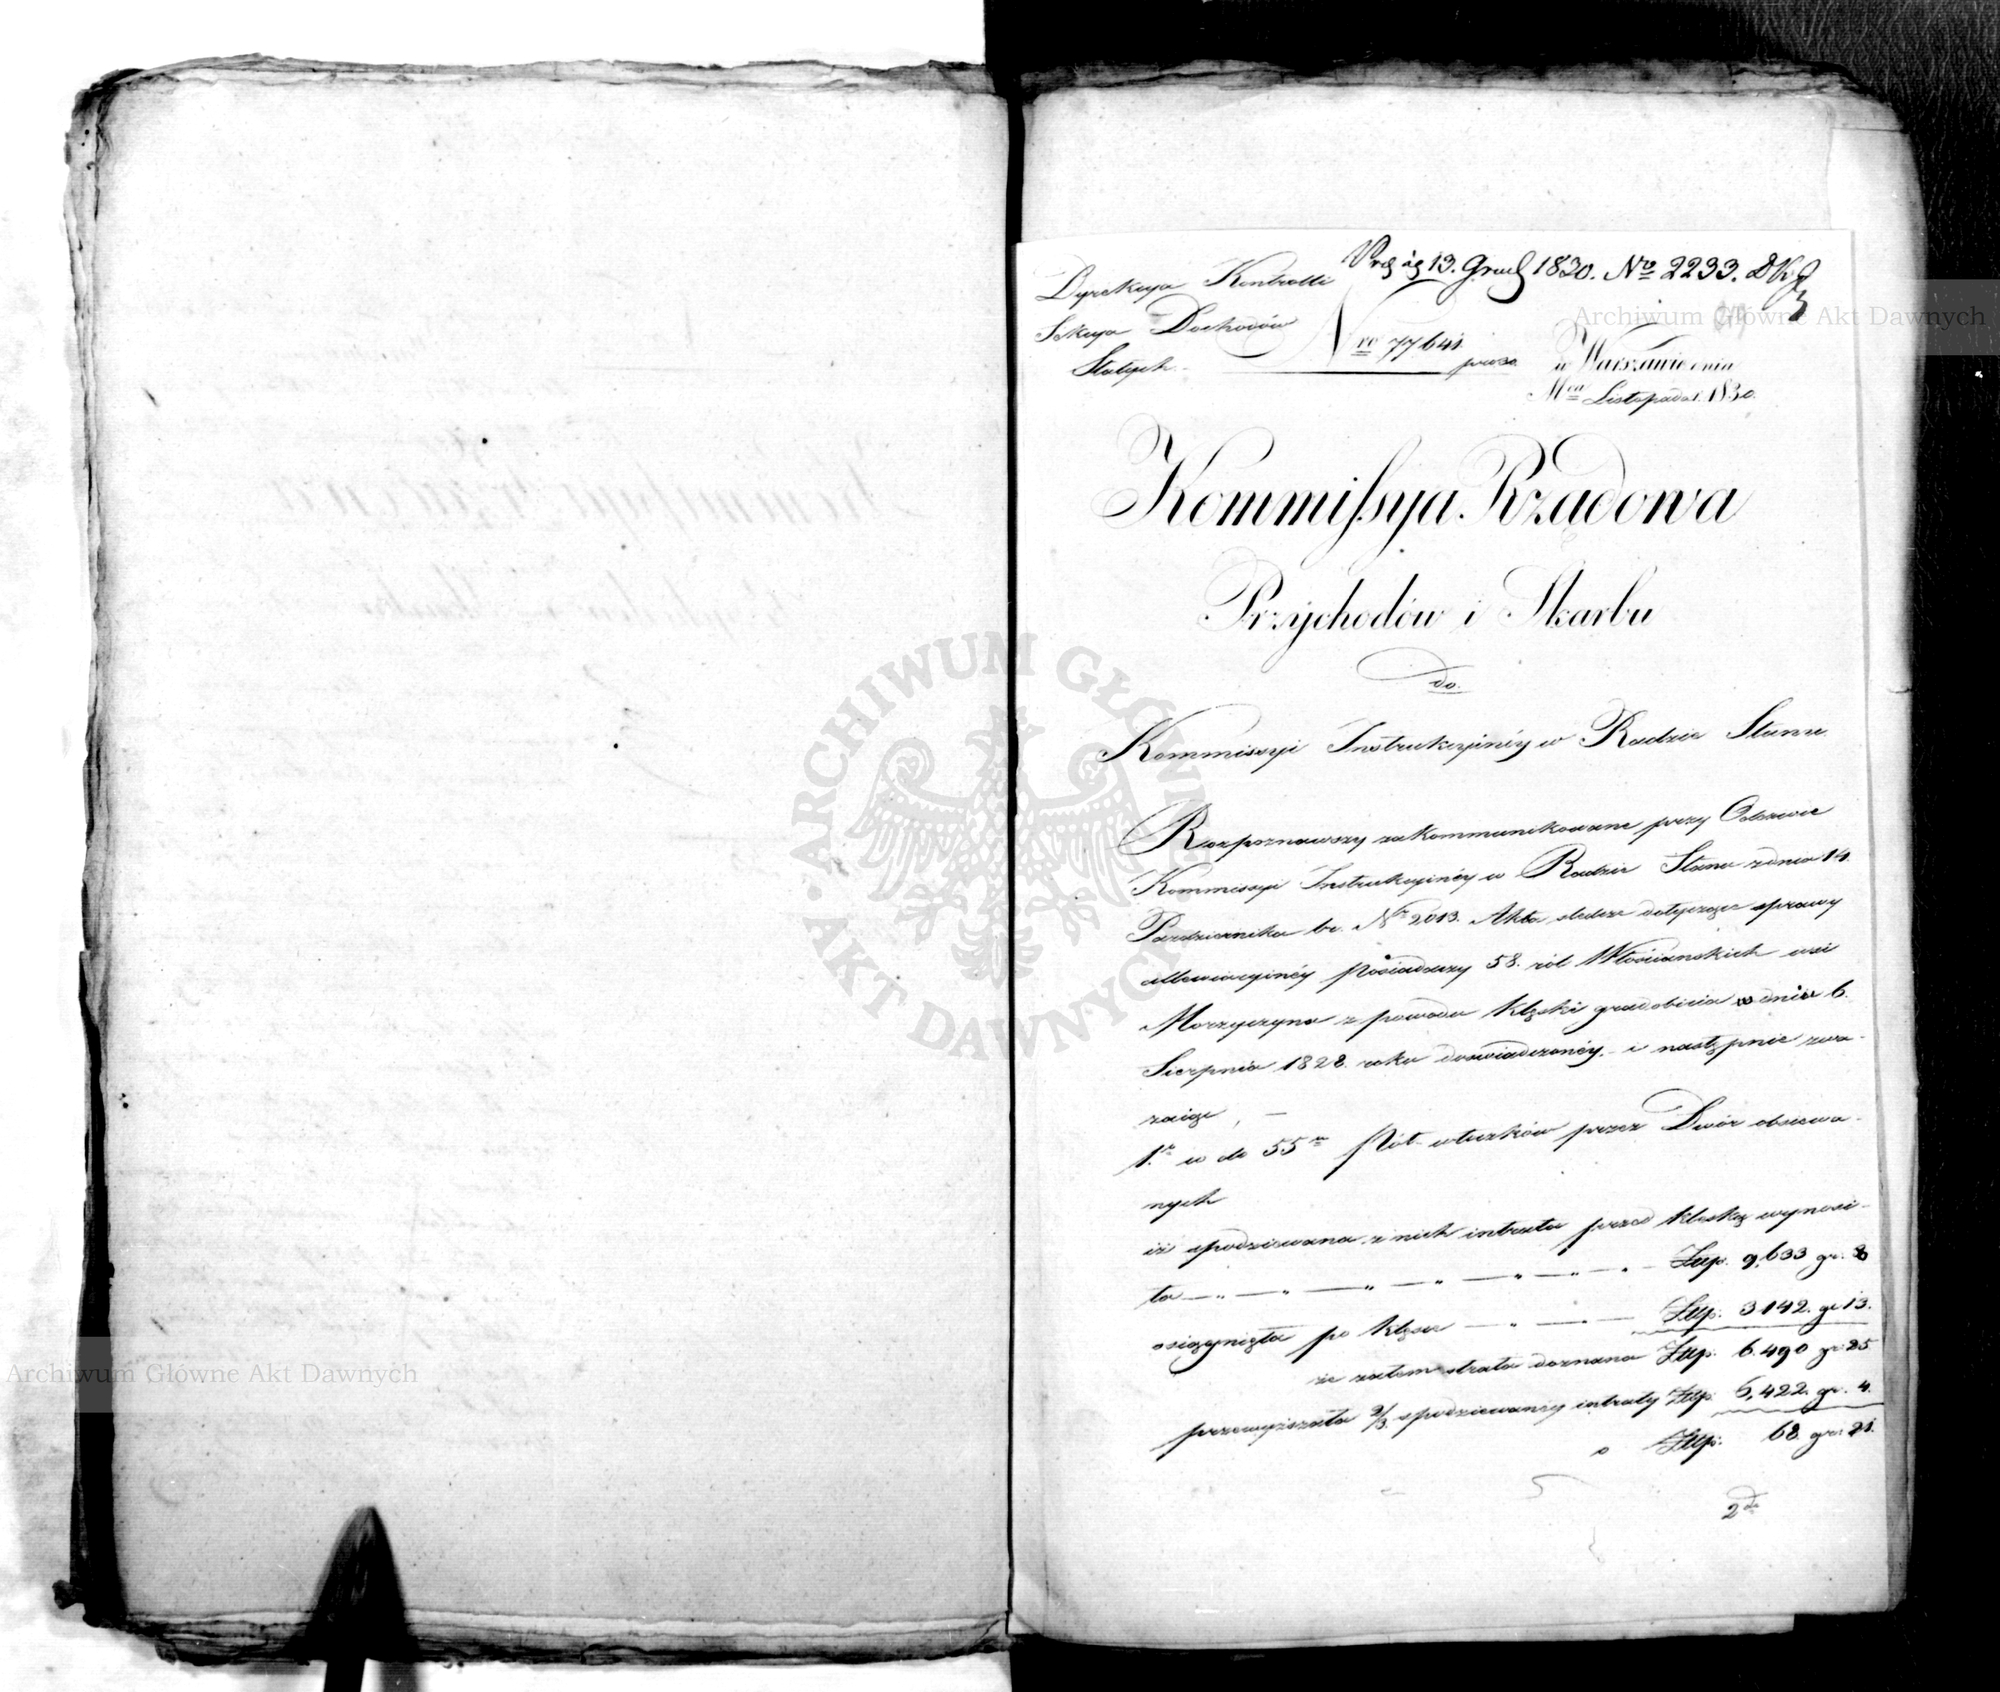 13. Grud 1830. Nro 2233.
Dyrekcya Kontrolli
Sekcya Dochodów
Stałych.
Nro 77641
w Warszawie dnia
Mca Listopada 1830.
Kommissya Rządowa
Przychodów i Skarbu
do
Kommissyi Instrukcyinéy w Radzie Stanu
Rozpoznawszy zakommunikowane przy Odezwie
Kommissyi Instrukcyinéy w Radzie Stanu z dnia 14.
Pazdziernika br. Nr 2013. Akta śledcze dotyczące sprawy
allewiacyinéy Posiadaczy 58. ról Włościańskich wsi
Morzyczyna z powodu klęski gradobicia w dniu 6.
Sierpnia 1828. roku doświadczonéy. i następnie zwa-
żaiąc, —
1. w do 55 Pół-włuzków przez Dwór obsiewa-
nych
iż spodziewana z nich intrata przed klęską wynosi-
ła — „ — „ — „ — „ — „ — Złp. 9,633 gr. 8
osiągnięta po klęsce — „ — „ — Złp. 3142. gr 13.
że zatem strata doznana Złp. 6.490 gr: 25
przewyższała 2/3 spodziewanéy intraty Złp. 6,422. gr. 4.
o Złp. 68. gr: 21.
2
Archiwum Główne Akt Dawnych
Archiwum Główne Akt Dawnych
ARCHIWUM GŁÓWNE · AKT DAWNYCH ·